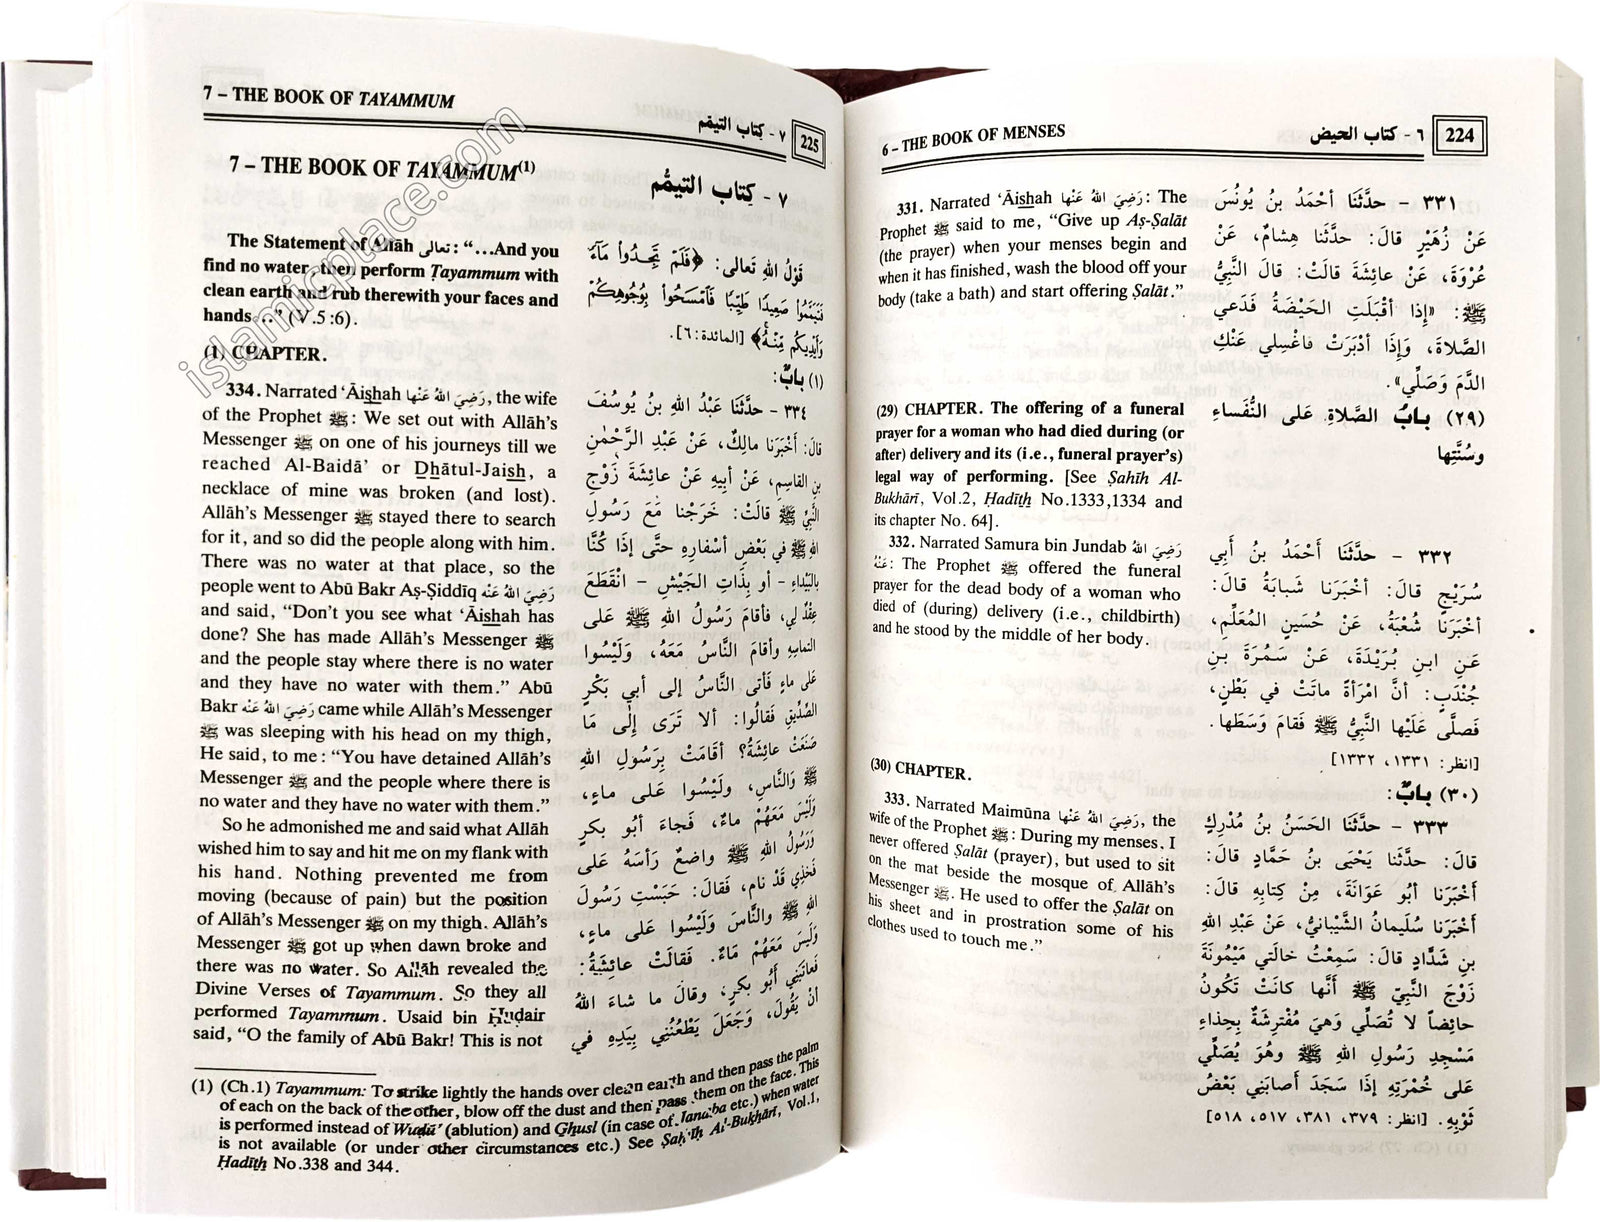 6 – THE BOOK OF MENSES
٦ - كتاب الحيض
224
331. Narrated ‘Āishah رَضِيَ اللهُ عَنْها: The
Prophet ﷺ said to me, “Give up Aṣ-Ṣalāt
(the prayer) when your menses begin and
when it has finished, wash the blood off your
body (take a bath) and start offering Ṣalāt.”
(29) CHAPTER. The offering of a funeral
prayer for a woman who had died during (or
after) delivery and its (i.e., funeral prayer’s)
legal way of performing. [See Ṣaḥīh Al-
Bukhārī, Vol.2, Ḥadīth No.1333,1334 and
its chapter No. 64].
332. Narrated Samura bin Jundab رَضِيَ اللهُ
عَنْهُ: The Prophet ﷺ offered the funeral
prayer for the dead body of a woman who
died of (during) delivery (i.e., childbirth)
and he stood by the middle of her body.
(30) CHAPTER.
333. Narrated Maimūna رَضِيَ اللهُ عَنْها, the
wife of the Prophet ﷺ: During my menses, I
never offered Ṣalāt (prayer), but used to sit
on the mat beside the mosque of Allāh’s
Messenger ﷺ. He used to offer the Ṣalāt on
his sheet and in prostration some of his
clothes used to touch me.”
٣٣١ - حدَّثَنَا أحْمَدُ بنُ يُونُسَ
عَنْ زُهَيْرٍ قالَ: حدَّثَنا هِشامٌ، عَنْ
عُرْوَةَ، عَنْ عائِشَةَ قالَتْ: قالَ النَّبِيُّ
ﷺ: «إِذا أقْبَلَتِ الحَيْضَةُ فَدَعي
الصَّلاةَ، وَإِذَا أدْبَرَتْ فاغْسِلي عَنْكِ
الدَّمَ وَصَلِّي».
(٢٩) بابُ الصَّلاةِ عَلى النُّفَساءِ
وسُنَّتِها
٣٣٢ - حدَّثَنَا أَحْمَدُ بنُ أَبِي
سُرَيْجٍ قالَ: أخْبَرَنا شَبابَةُ قالَ:
أخْبَرَنَا شُعْبَةُ، عَنْ حُسَيْنٍ المُعَلِّمِ،
عَنِ ابنِ بُرَيْدَةَ، عَنْ سَمُرَةَ بنِ
جُنْدَبٍ: أنَّ امْرَأةً ماتَتْ في بَطْنٍ،
فَصلَّى عَلَيْها النَّبيُّ ﷺ فَقامَ وَسَطَها.
[انظر: ١٣٣١، ١٣٣٢]
(٣٠) بابٌ:
٣٣٣ - حدَّثَنا الحَسَنُ بنُ مُدْرِكٍ
قالَ: حدَّثَنا يَحْيَى بنُ حَمَّادٍ قالَ:
أَخْبَرَنا أبُو عَوَانَةَ، مِنْ كِتابِهِ قالَ:
أَخْبَرَنا سُلَيمانُ الشَّيْبانيُّ، عَنْ عَبْدِ اللهِ
بنِ شَدَّادٍ قالَ: سَمِعْتُ خالَتي مَيْمُونَةَ
زَوْجَ النَّبِيِّ ﷺ أَنَّها كانَتْ تَكُونُ
حائِضاً لا تُصَلِّي وَهيَ مُفْتَرِشَةٌ بِحِذاءِ
مَسْجِدِ رَسُولِ اللهِ ﷺ وهُوَ يُصَلِّي
عَلى خُمْرَتِهِ إذَا سَجَدَ أصَابَني بَعْضُ
ثَوْبِهِ. [انظر: ٣٧٩، ٣٨١، ٥١٧، ٥١٨]
7 – THE BOOK OF TAYAMMUM
٧ - كتاب التيمّم
225
7 – THE BOOK OF TAYAMMUM(1)
The Statement of Allāh تعالى: “…And you
find no water, then perform Tayammum with
clean earth and rub therewith your faces and
hands…” (V.5:6).
(1) CHAPTER.
334. Narrated ‘Āishah رَضِيَ اللهُ عَنْها, the wife
of the Prophet ﷺ: We set out with Allāh’s
Messenger ﷺ on one of his journeys till we
reached Al-Baidā’ or Dhātul-Jaish, a
necklace of mine was broken (and lost).
Allāh’s Messenger ﷺ stayed there to search
for it, and so did the people along with him.
There was no water at that place, so the
people went to Abū Bakr Aṣ-Ṣiddīq رَضِيَ اللهُ عَنْهُ
and said, “Don’t you see what ‘Āishah has
done? She has made Allāh’s Messenger ﷺ
and the people stay where there is no water
and they have no water with them.” Abū
Bakr رَضِيَ اللهُ عَنْهُ came while Allāh’s Messenger
ﷺ was sleeping with his head on my thigh,
He said, to me: “You have detained Allāh’s
Messenger ﷺ and the people where there is
no water and they have no water with them.”
So he admonished me and said what Allāh
wished him to say and hit me on my flank with
his hand. Nothing prevented me from
moving (because of pain) but the position
of Allāh’s Messenger ﷺ on my thigh. Allāh’s
Messenger ﷺ got up when dawn broke and
there was no water. So Allāh revealed the
Divine Verses of Tayammum. So they all
performed Tayammum. Usaid bin Ḥuḍair
said, “O the family of Abū Bakr! This is not
٧ - كِتاب التيمُّم
قَوْلُ اللهِ تَعالى: ﴿فَلَمْ تَجِدُوا مَآءً
فَتَيَمَّمُوا صَعِيدًا طَيِّبًا فَٱمْسَحُوا بِوُجُوهِكُمْ
وَأَيْدِيكُم مِّنْهُ﴾ [المائدة: ٦].
(١) بابٌ:
٣٣٤ - حدَّثَنَا عَبْدُ اللهِ بنُ يُوسُفَ
قالَ: أخْبَرَنا مالِكٌ، عَنْ عَبْدِ الرَّحْمٰنِ
بنِ القاسِمِ، عَنْ أبِيهِ عَنْ عائِشَةَ زَوْجِ
النَّبِيِّ ﷺ قالَتْ: خَرَجْنا مَعَ رَسُولِ
اللهِ ﷺ في بَعْضِ أسْفارِهِ حتَّى إذَا كُنَّا
بالبَيْداءِ - أو بِذَاتِ الجَيْشِ - انْقَطَعَ
عِقْدٌ لي، فأقامَ رَسُولُ اللهِ ﷺ عَلى
التماسِهِ وأقامَ النَّاسُ مَعَهُ، وَلَيْسُوا
عَلى ماءٍ فأتى النَّاسُ إلى أبي بَكْرٍ
الصِّدِّيقِ فَقالُوا: ألا تَرَى إلَى مَا
صَنَعَتْ عائِشَةُ؟ أقامَتْ بِرَسُولِ اللهِ
ﷺ وَالنَّاسِ، ولَيْسُوا عَلى ماءٍ،
وَلَيْسَ مَعَهُمْ ماءٌ، فَجاءَ أبُو بكرٍ
وَرَسُولُ اللهِ ﷺ واضِعٌ رَأسَهُ عَلى
فَخذِي قَدْ نام، فَقالَ: حَبَسْتِ رَسُولَ
اللهِ ﷺ والنَّاسَ وَلَيْسُوا عَلى ماءٍ،
وَلَيسَ مَعَهُمْ مَاءٌ. فَقالَتْ عائِشَةُ:
فَعاتَبَني أبُو بكرٍ، وقالَ ما شاءَ اللهُ
أنْ يَقُولَ، وَجَعَلَ يَطْعُنُنِي بيَدِهِ في
(1) (Ch.1) Tayammum: To strike lightly the hands over clean earth and then pass the palm
of each on the back of the other, blow off the dust and then pass them on the face. This
is performed instead of Wuḍū’ (ablution) and Ghusl (in case of Janāba etc.) when water
is not available (or under other circumstances etc.) See Ṣaḥīh Al-Bukhārī, Vol.1,
Ḥadīth No.338 and 344.
islamicplace.com